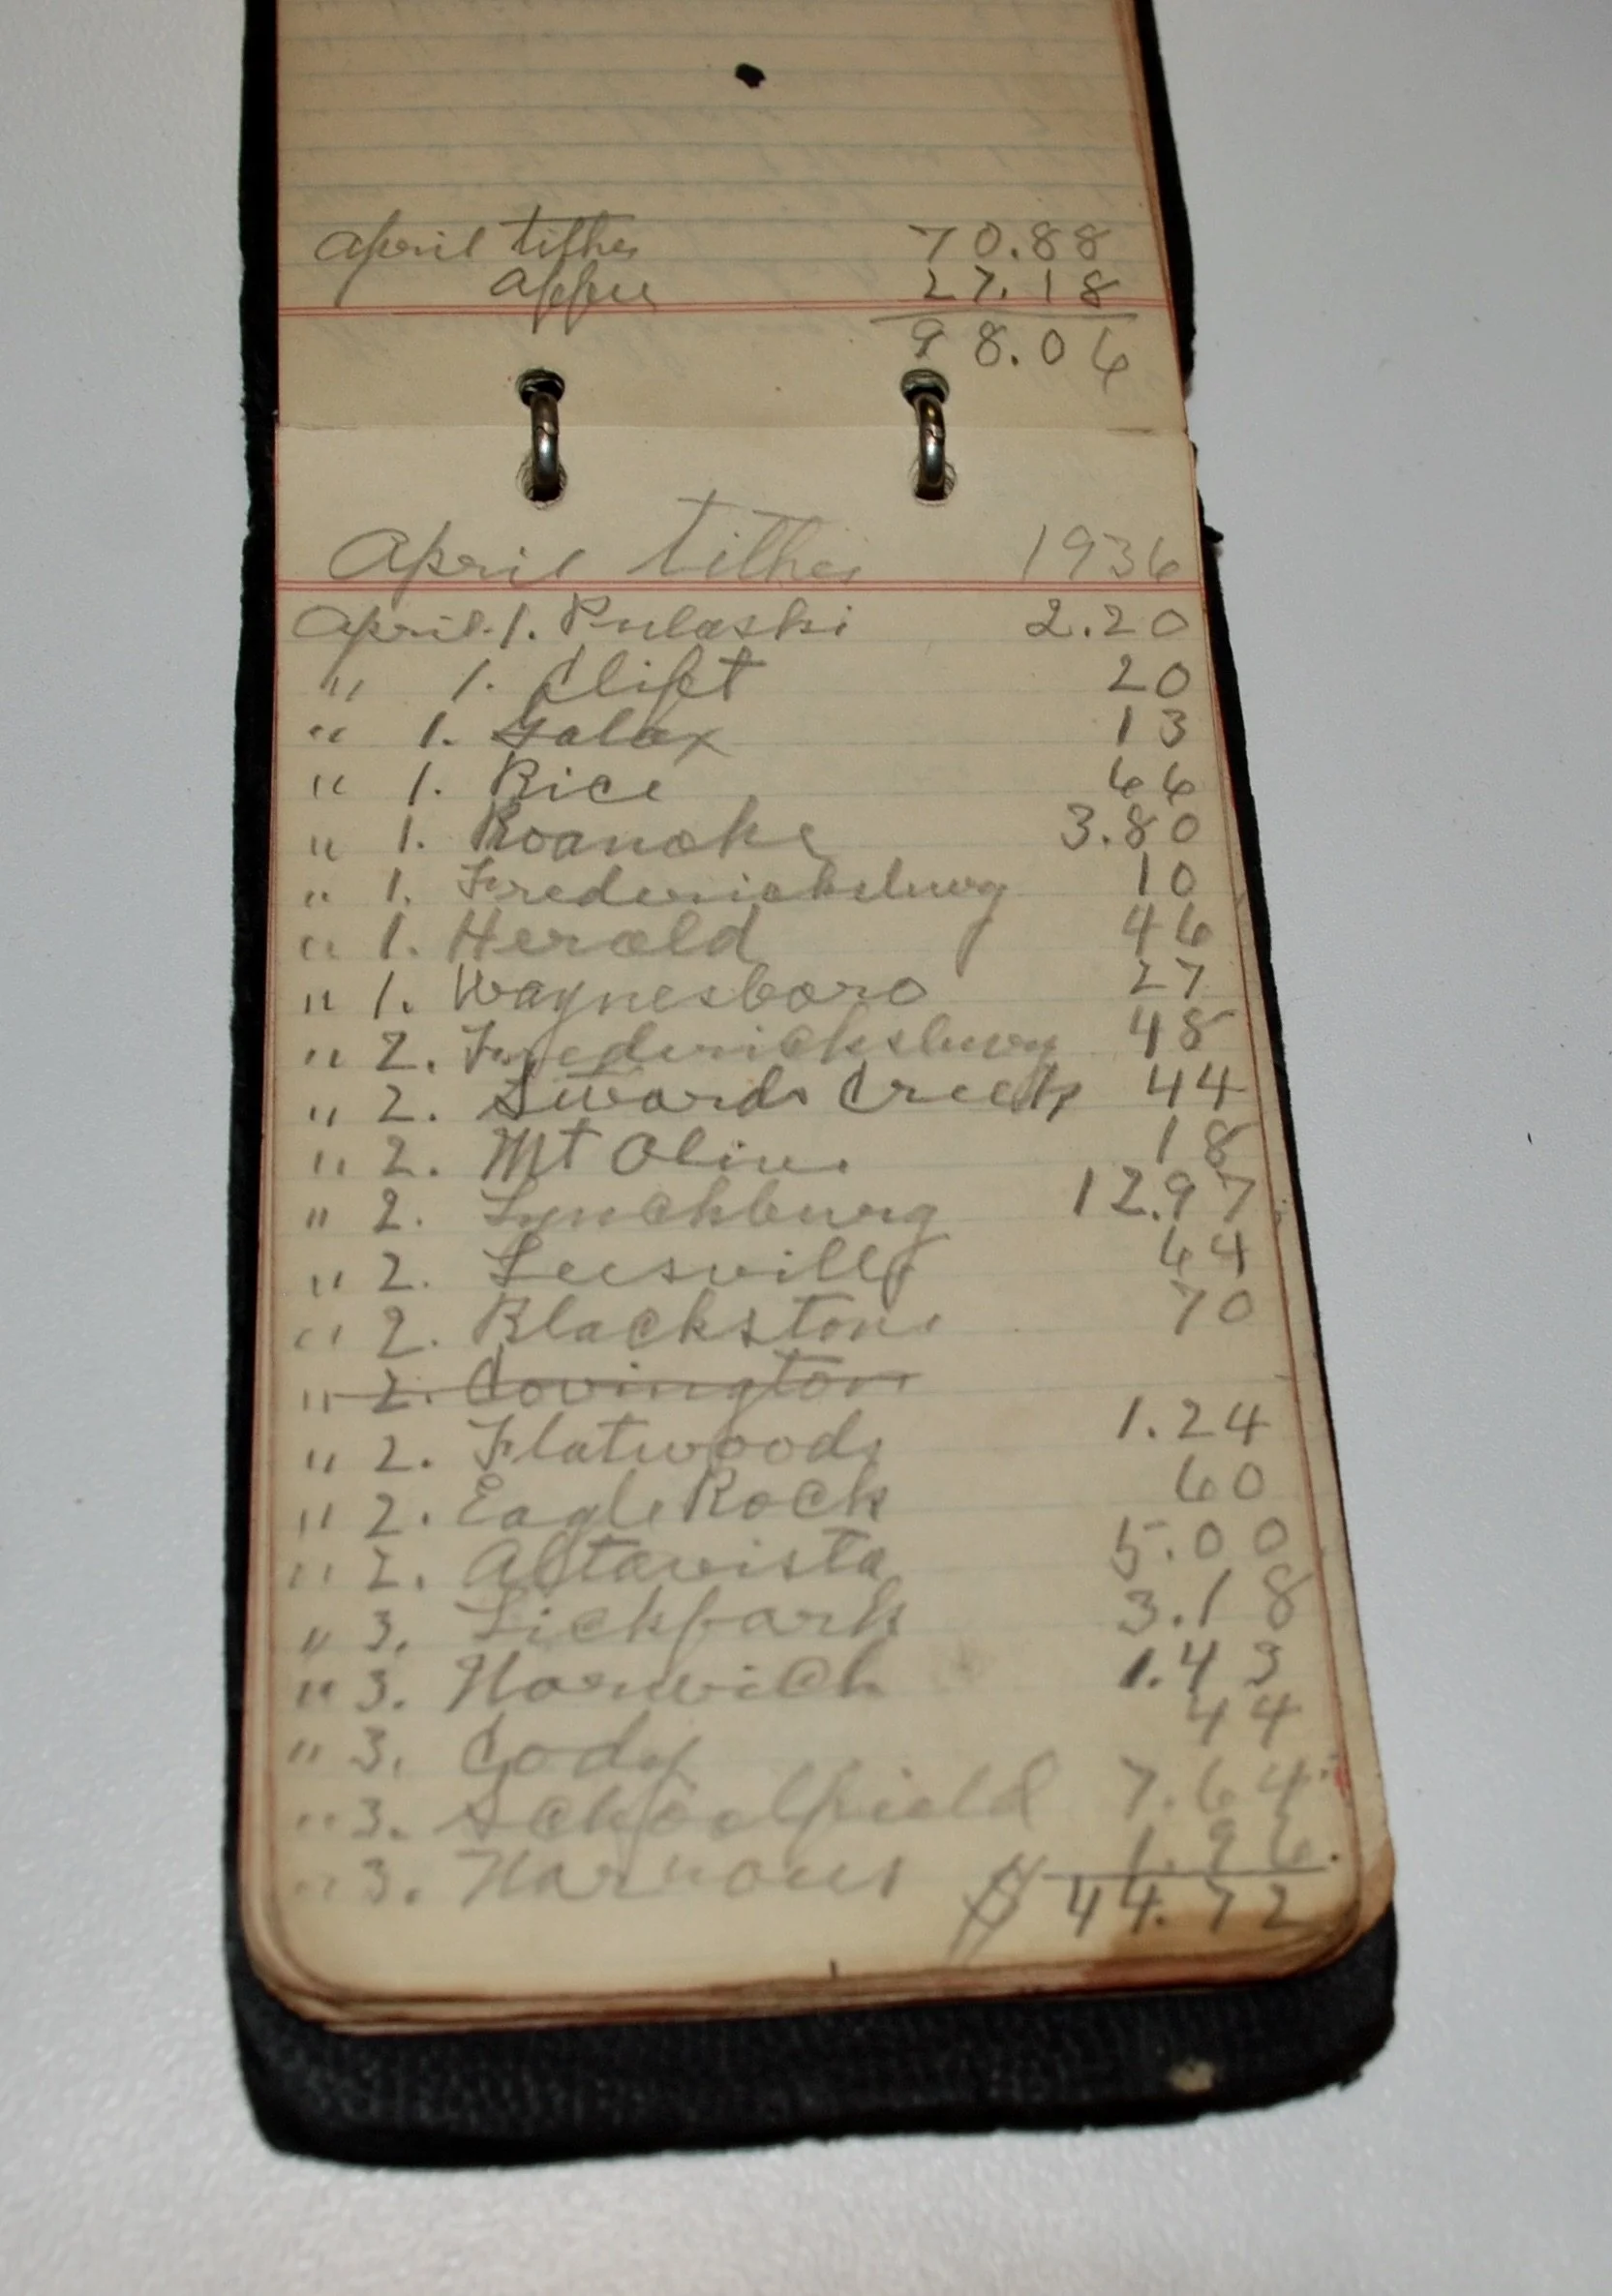 April tithes 70.88
27.18
98.06
April tithes 1936
April. 1. Pulaski 2.20
" 1. Clift 20
" 1. Galax 13
" 1. Rice 66
" 1. Roanoke 3.80
" 1. Fredericksburg 10
" 1. Herald 46
" 1. Waynesboro 27
" 2. Fredericksburg 48
" 2. Swords Creek 44
" 2. Mt Olive 18
" 2. Lynchburg 12.97
" 2. Leesville 64
" 2. Blackstone 70
" 2. Covington
" 2. Flatwoods 1.24
" 2. Eagle Rock 60
" 2. Altavista 5.00
" 3. Lickfork 3.18
" 3. Norwich 1.43
" 3. Cody 44
" 3. Schoolfield 7.64
" 3. Narrows 1.96
$ 44.72